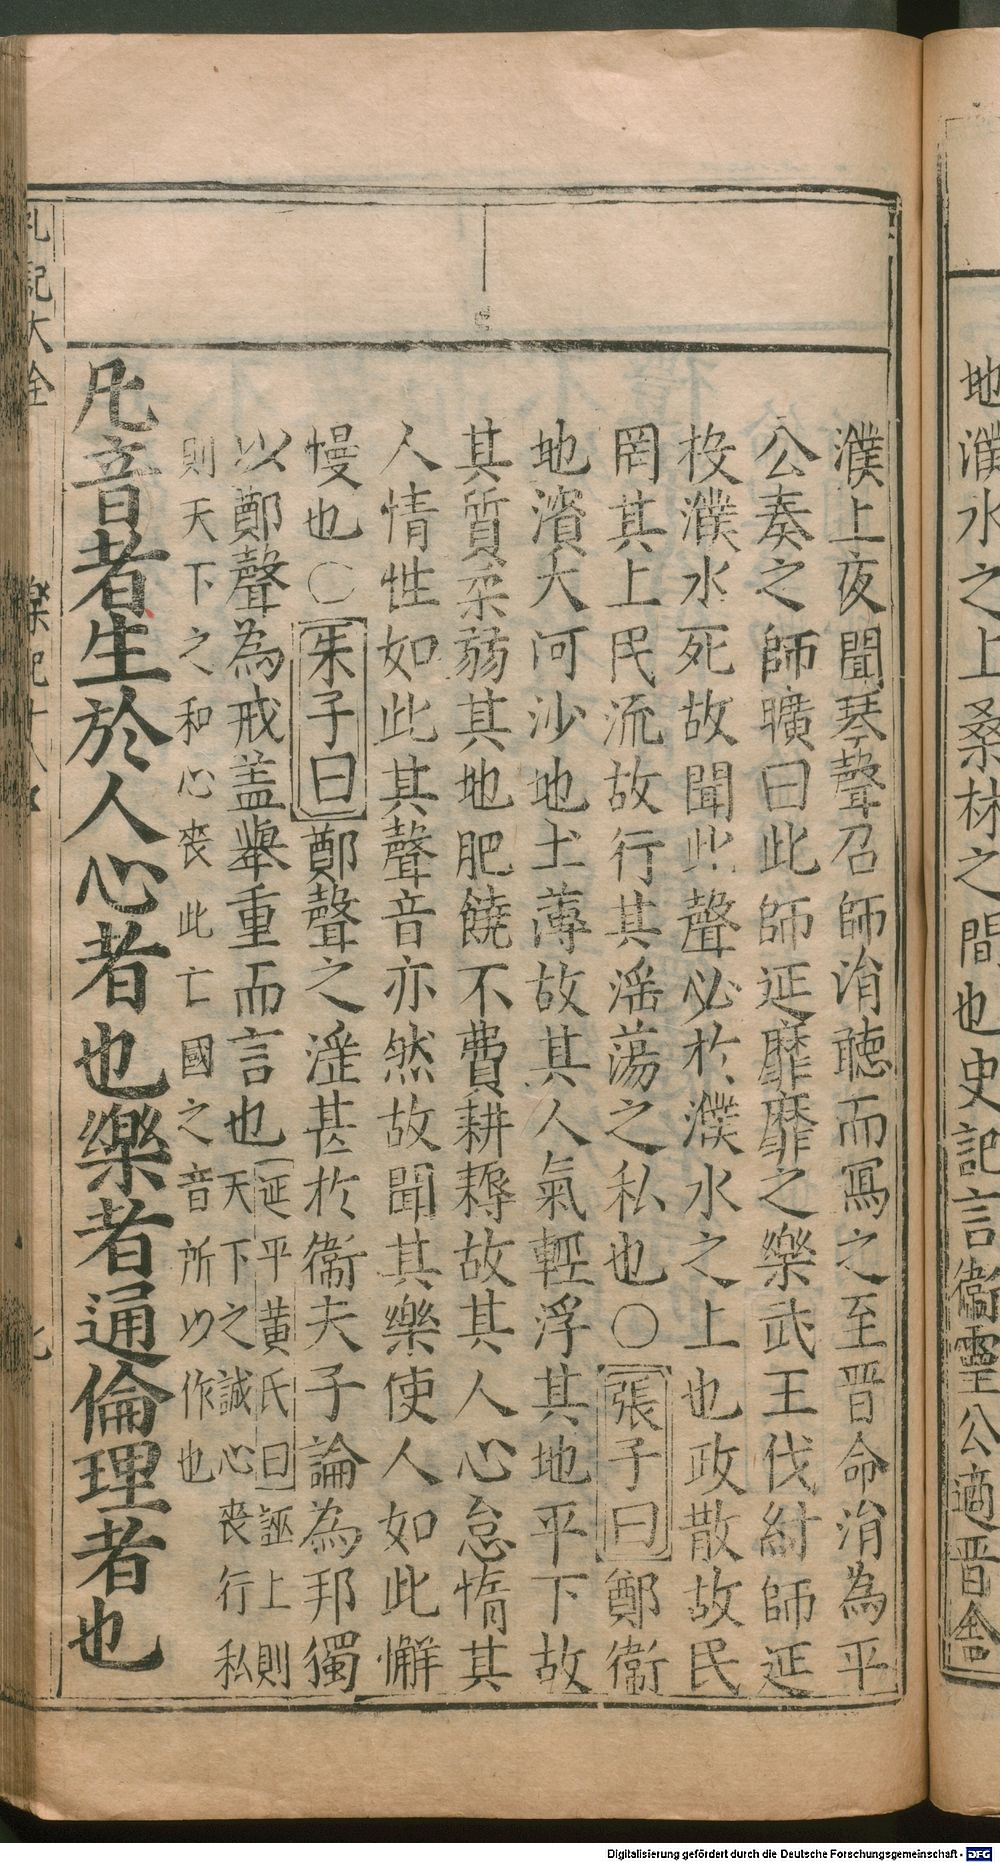 地濮水之上桑林之間也史記言衞靈公適晋舍
濮上夜聞琴聲召師涓聽而冩之至晋命涓為平
公奏之師曠曰此師延靡靡之樂武王伐紂師延
投濮水死故聞此聲必於濮水之上也政散故民
罔其上民流故行其滛蕩之私也○張子曰鄭衞
地濱大河沙地土薄故其人氣輕浮其地平下故
其質柔弱其地肥饒不費耕耨故其人心怠惰其
人情性如此其聲音亦然故聞其樂使人如此懈
慢也○朱子曰鄭聲之滛甚於衞夫子論為邦獨
以鄭聲為戒盖舉重而言也延平黄氏曰誣上則
天下之誠心喪行私
則天下之和心喪此亡國之音所以作也
凡音者生於人心者也樂者通倫理者也
礼記大全 樂記十八
Digitalisierung gefördert durch die Deutsche Forschungsgemeinschaft - DFG